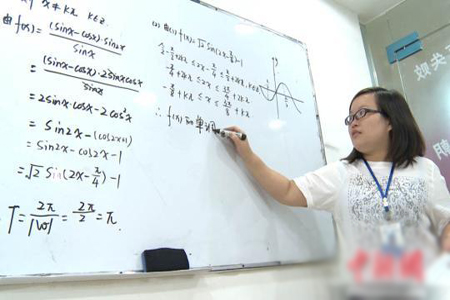 x≠kπ, k∈Z
由f(x)= (sinx-cosx)·sin2x / sinx
= (sinx-cosx)·2sinxcosx / sinx
= 2sinxcosx-2cos²x
= sin2x-(cos2x+1)
= sin2x-cos2x-1
= √2 Sin(2x-π/4)-1
T= 2π/|ω| = 2π/2 = π.
(2) 由(1) f(x)=√2 sin(2x-π/4)-1
-π/2+2kπ ≤ 2x-π/4 ≤ π/2+2kπ, k∈Z
-π/4+2kπ ≤ 2x ≤ 3π/4+2kπ
-π/8+kπ ≤ x ≤ 3π/8+kπ
∴ f(x)的单调